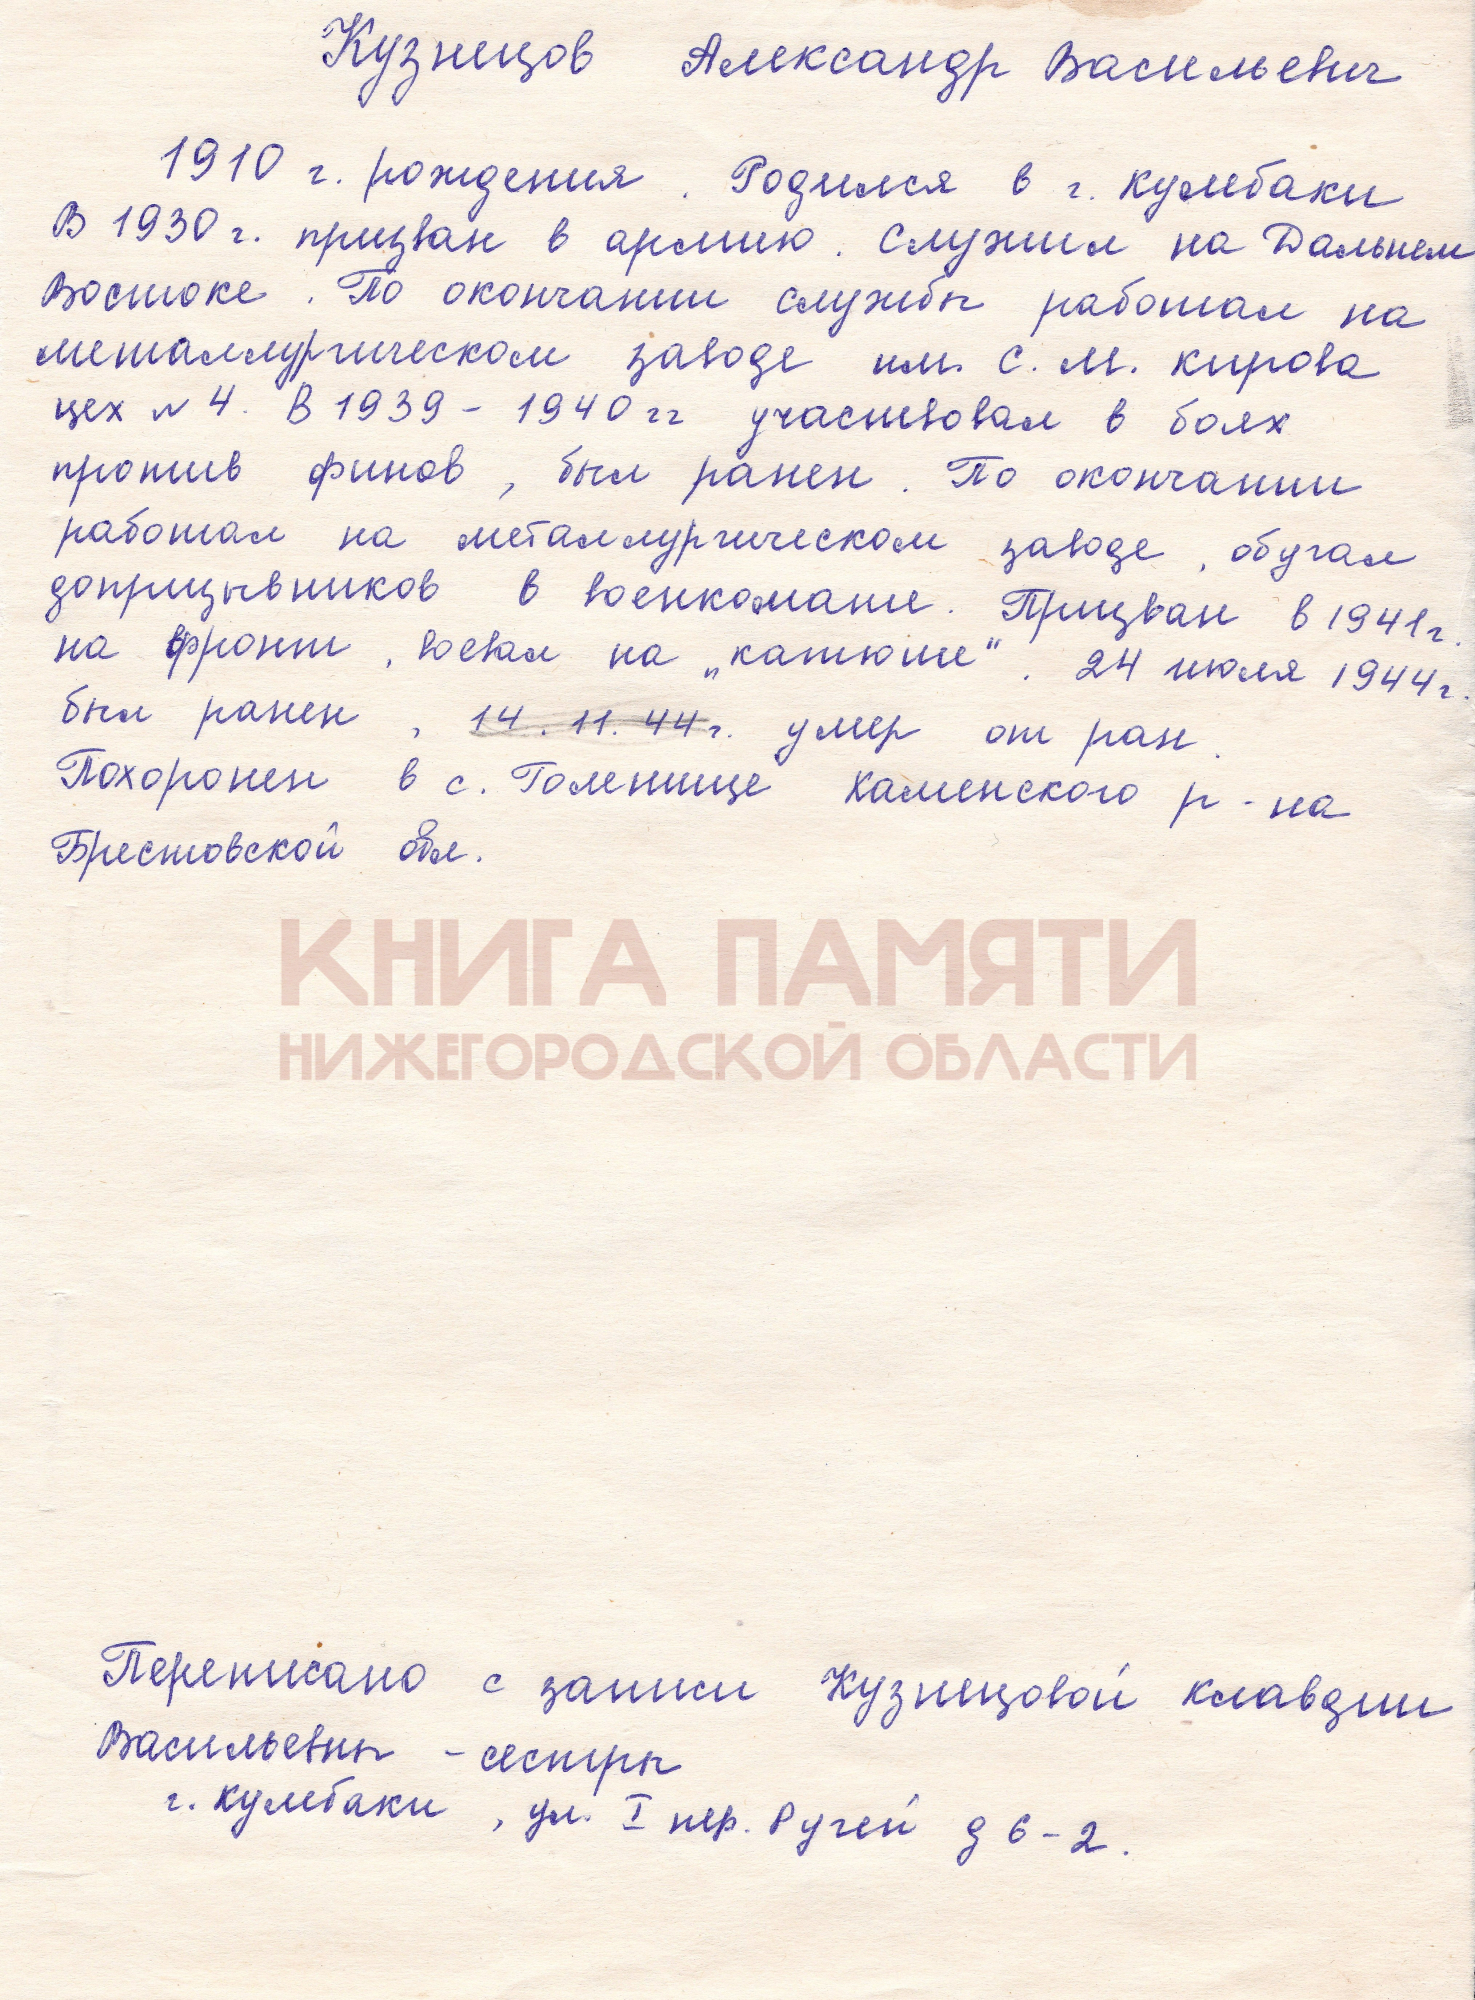 Кузнецов Александр Васильевич
1910 г. рождения. Родился в г. Кулебаки
В 1930 г. призван в армию. Служил на Дальнем
Востоке. По окончании службы работал на
металлургическом заводе им. С. М. Кирова
цех № 4. В 1939 - 1940 гг участвовал в боях
против финов, был ранен. По окончании
работал на металлургическом заводе, обучал
допризывников в военкомате. Призван в 1941 г.
на фронт, воевал на „катюше“. 24 июля 1944 г.
был ранен, 14. 11. 44 г. умер от ран.
Похоронен в с. Голенище Каменского р-на
Брестовской обл.
КНИГА ПАМЯТИ
НИЖЕГОРОДСКОЙ ОБЛАСТИ
Переписано с записи Кузнецовой Клавдии
Васильевны - сестры
г. Кулебаки, ул. I пер. Ручей д 6-2.